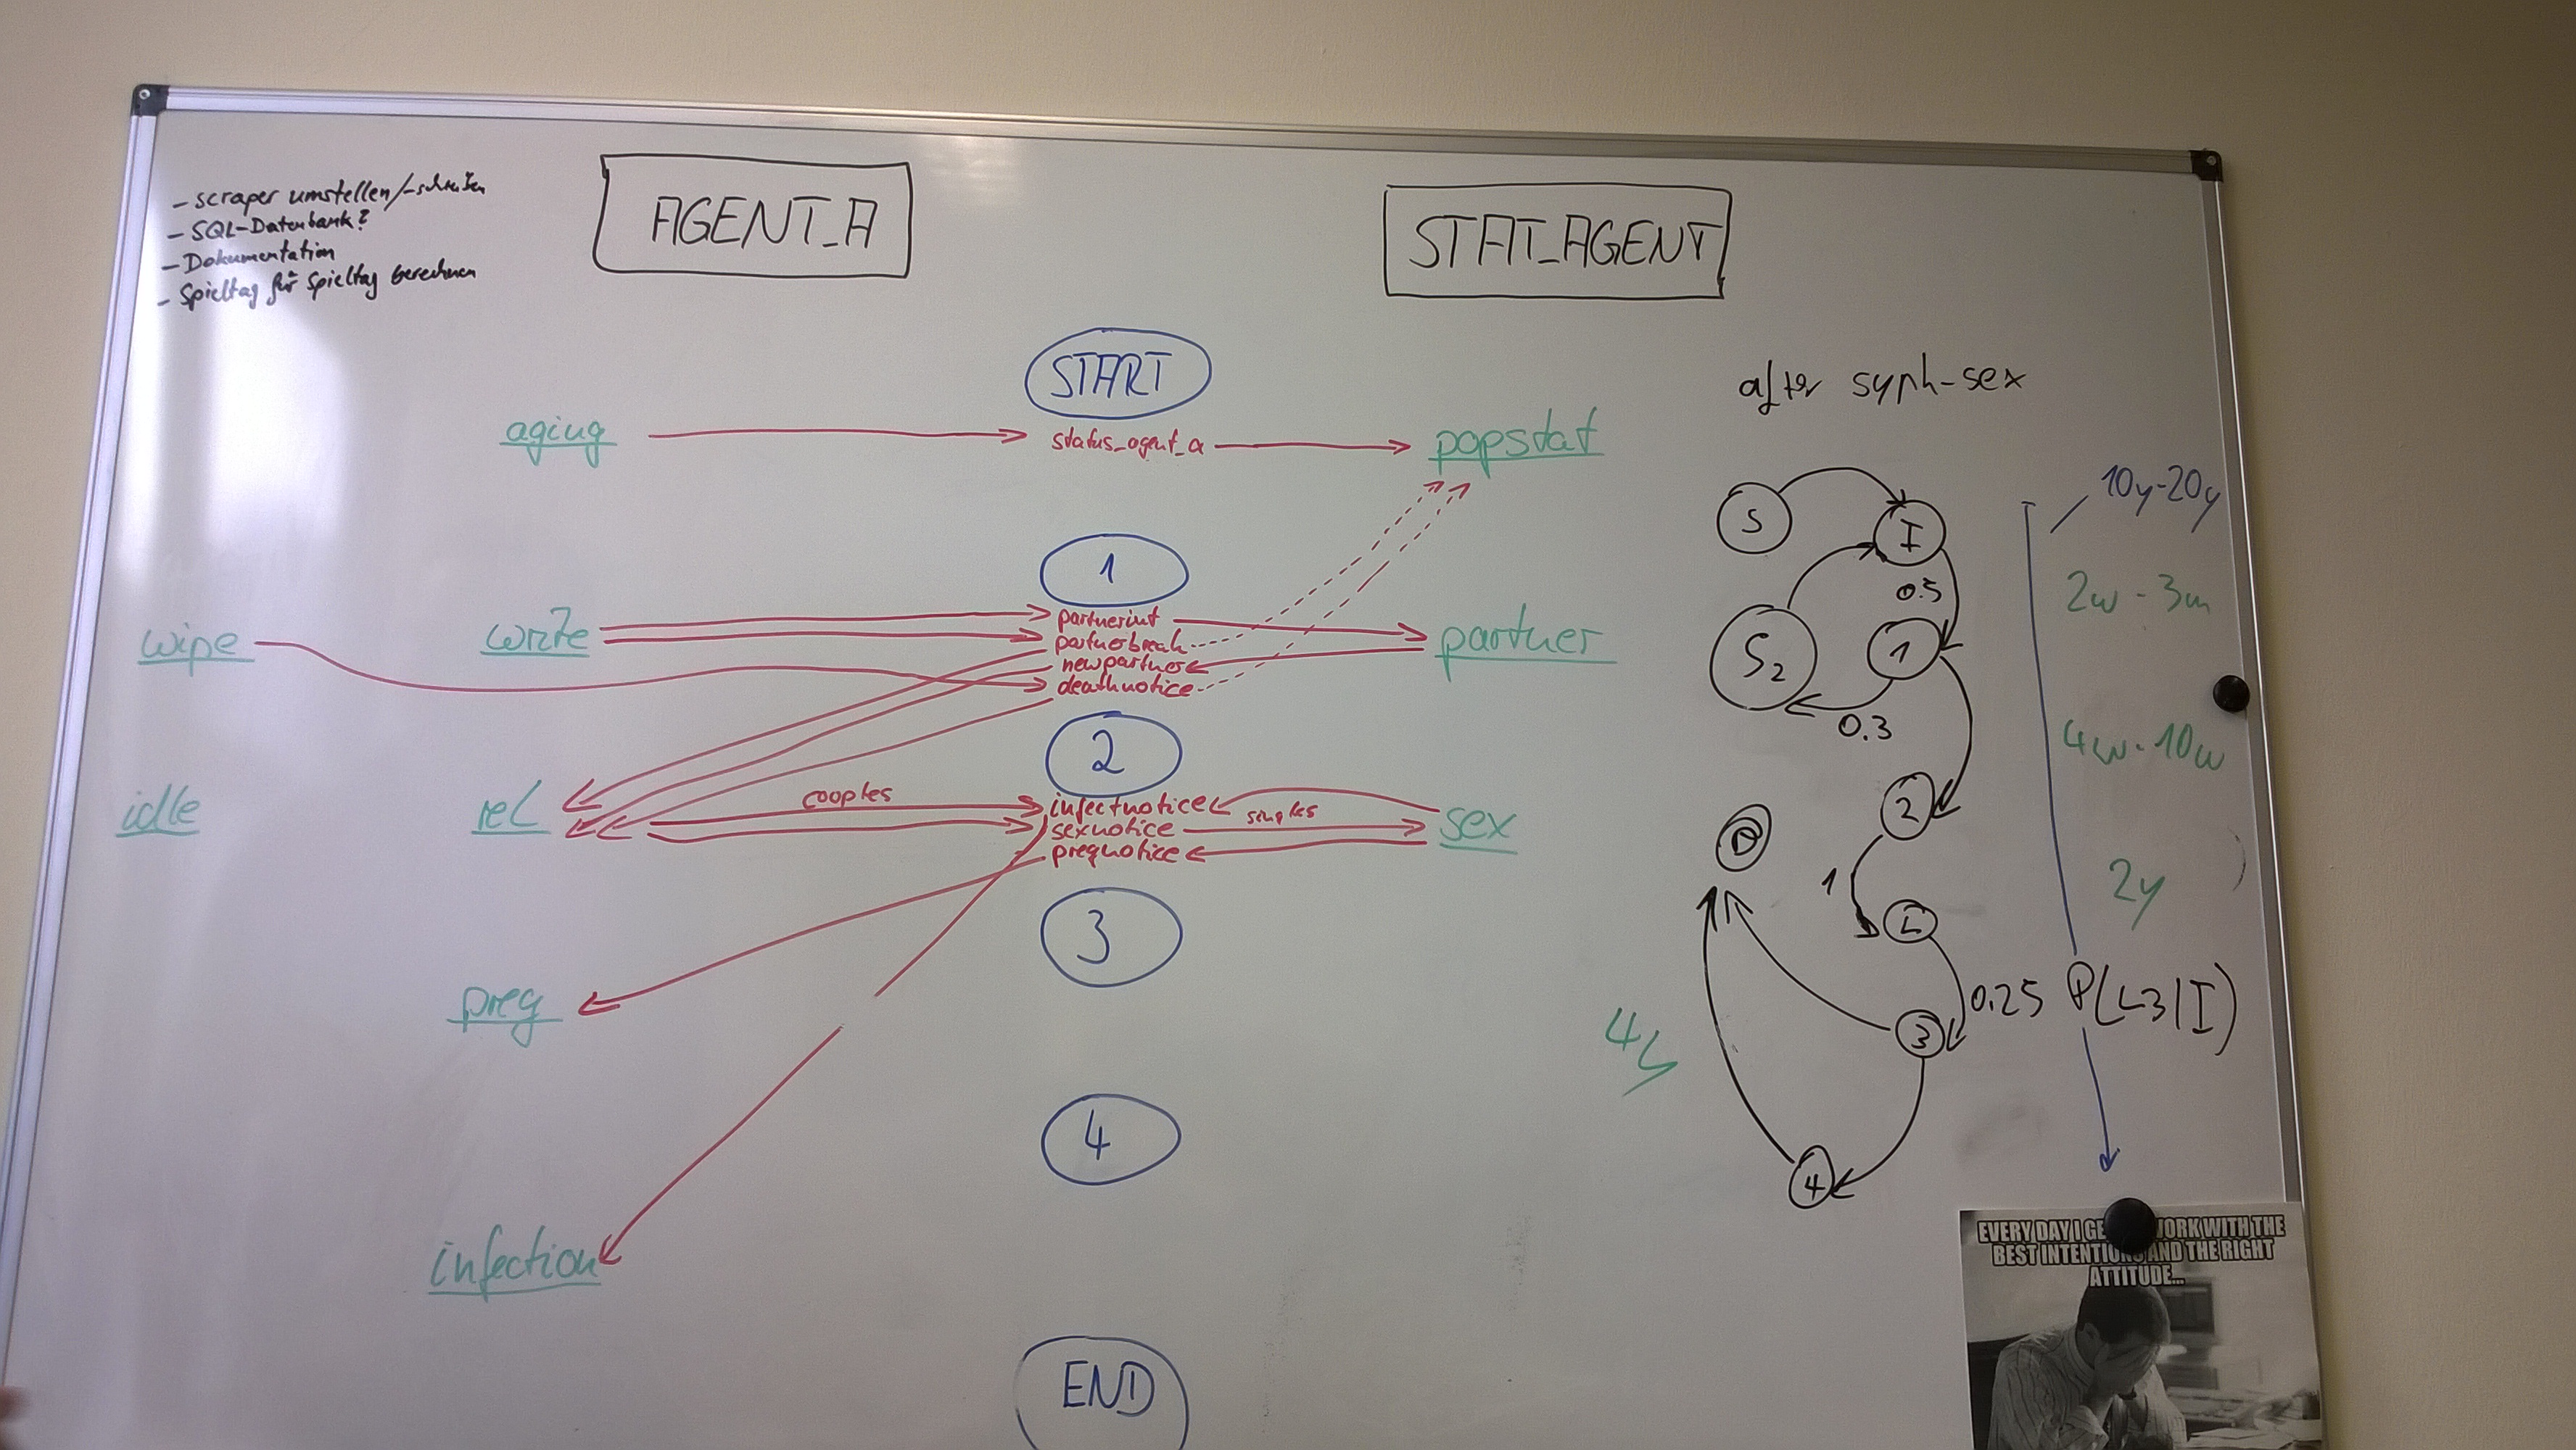 - scraper umstellen/-schreiben
- SQL-Datenbank?
- Dokumentation
- Spieltag für Spieltag berechnen
AGENT_A
STAT_AGENT
START
aging
status_agent_a
popstat
1
wipe
partnerint
partnerbreak
newpartner
deathnotice
partner
2
idle
rel
couples
infectnotice
sexnotice
pregnotice
singles
sex
3
preg
4
infection
END
after syph-sex
S
I
0.5
S2
1
0.3
2
D
1
L
0.25 P(L3|I)
3
4
10y-20y
2w - 3m
4w - 10w
2y
EVERY DAY I GE WORK WITH THE
BEST INTENTIONS AND THE RIGHT
ATTITUDE...